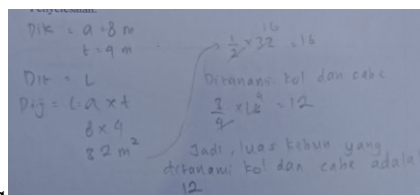 Penyelesaian:
Dik : a = 8 m
t = 4 m
Dit = L
Dij = L = a x t
8 x 4
32 m²
1/2 x 32 16 = 16
Ditanami kol dan cabe
3/4 x 16 4 = 12
Jadi, luas kebun yang
ditanami kol dan cabe adalah
12